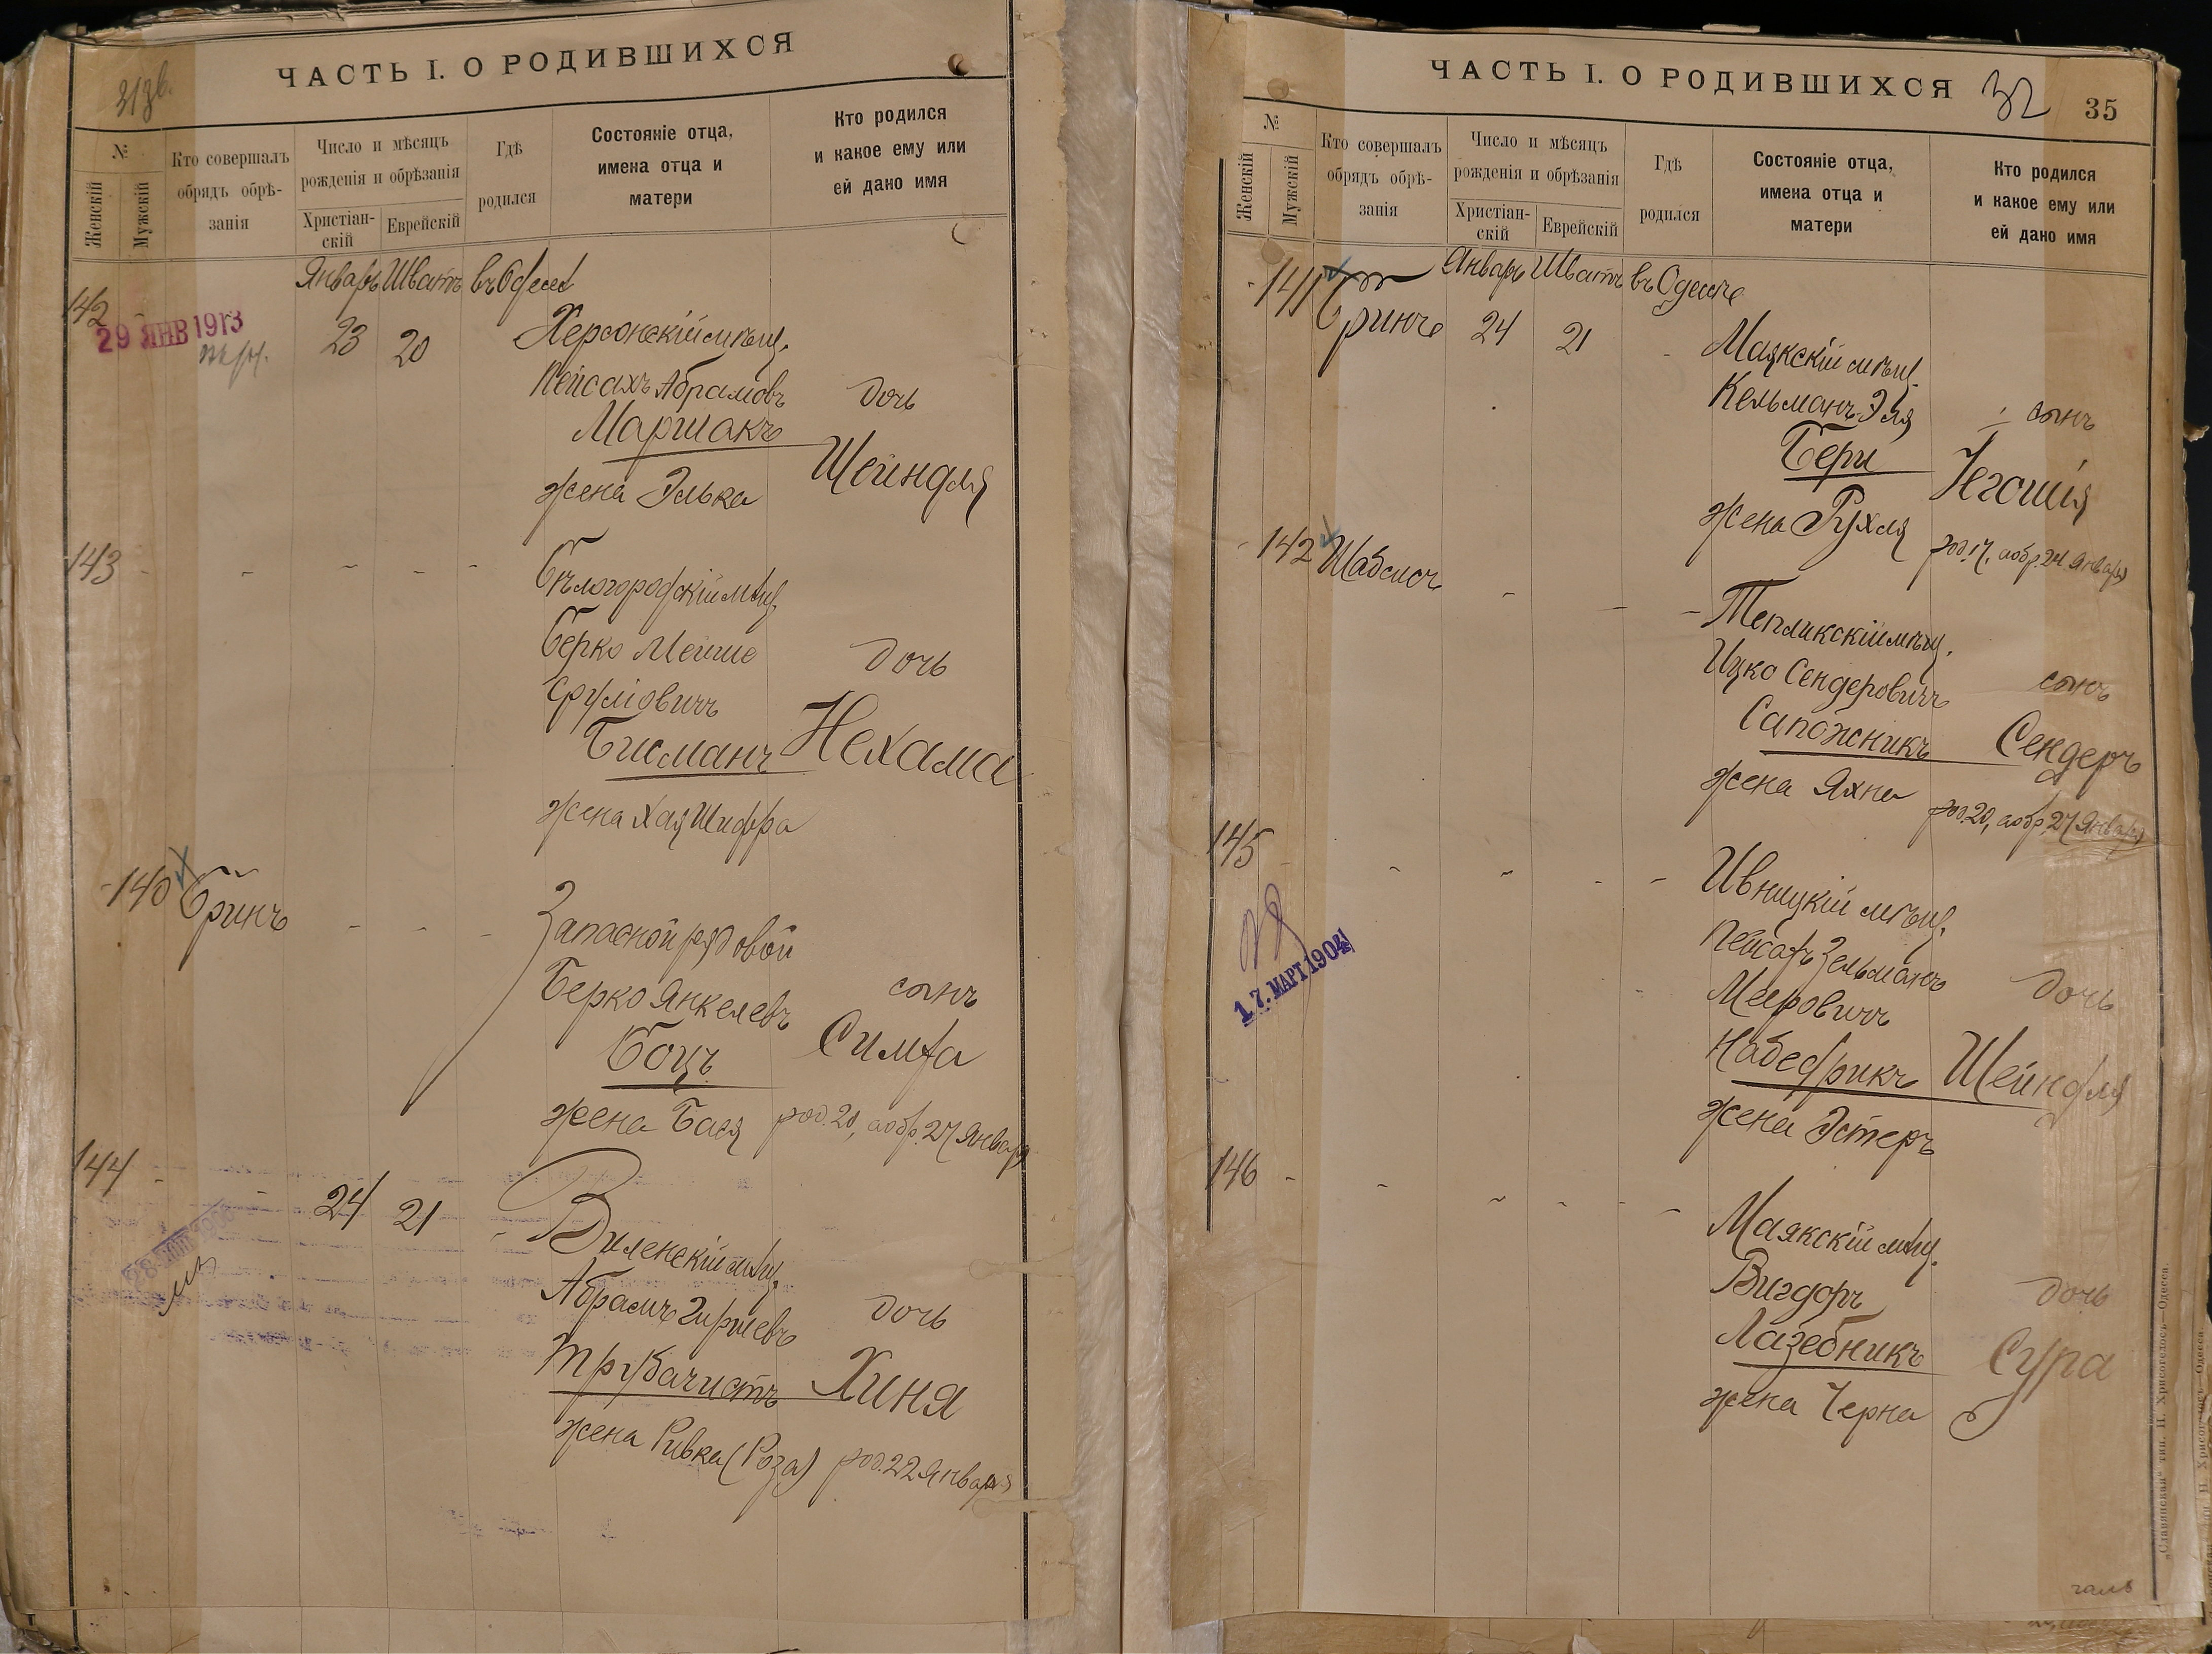 31 зв.
ЧАСТЬ I. О РОДИВШИХСЯ
№
Женскій
Мужскій
Кто совершалъ
обрядъ обрѣ-
занія
Число и мѣсяцъ
рожденія и обрѣзанія
Христіан-
скій
Еврейскій
Гдѣ
родился
Состояніе отца,
имена отца и
матери
Кто родился
и какое ему или
ей дано имя
Январь Шватъ въ Одессѣ
142
29 ЯНВ 1913
23 20 Херсонскій мѣщ.
Пейсахъ Абрамовъ дочь
Маршакъ
Шейндля
жена Элька
143 - - - - - Бѣлогородскій мѣщ.
Берко Мейше дочь
Сруліовичъ
Бисманъ Нехама
жена Хая Шифра
140 Бринъ - - - Запасной рядовой
Берко Янкелевъ сынъ
Боцъ Симха
жена Бася род. 20, а обр. 27 Января
144 - - 24 21 - Виленскій мѣщ.
Абрамъ Гиршевъ дочь
Трубачистъ Хиня
жена Ривка (Роза) род. 22 Января
ЧАСТЬ I. О РОДИВШИХСЯ
32
35
№
Женскій
Мужскій
Кто совершалъ
обрядъ обрѣ-
занія
Число и мѣсяцъ
рожденія и обрѣзанія
Христіан-
скій
Еврейскій
Гдѣ
родился
Состояніе отца,
имена отца и
матери
Кто родился
и какое ему или
ей дано имя
Январь Шватъ въ Одессѣ
141 Бринъ 24 21 - Маякскій мѣщ.
Кельманъ Эля сынъ
Бери Іегошія
жена Рухля род. 17, а обр. 24 Января
142 Шабсисъ - - - Тепликскій мѣщ.
Ицко Сендеровичъ сынъ
Сапожникъ Сендеръ
жена Яхна род. 20, а обр. 27 Января
145 - - - - - Ивницкій мѣщ.
17. МАРТ 1904
Пейсахъ Зельманъ
Мееровичъ дочь
Набедрикъ Шейндля
жена Эстеръ
146 - - - - - - Маякскій мѣщ.
Вигдоръ дочь
Лазебникъ Сура
жена Черна
„Славянская“ тип. Н. Хрисогелосъ—Одесса.